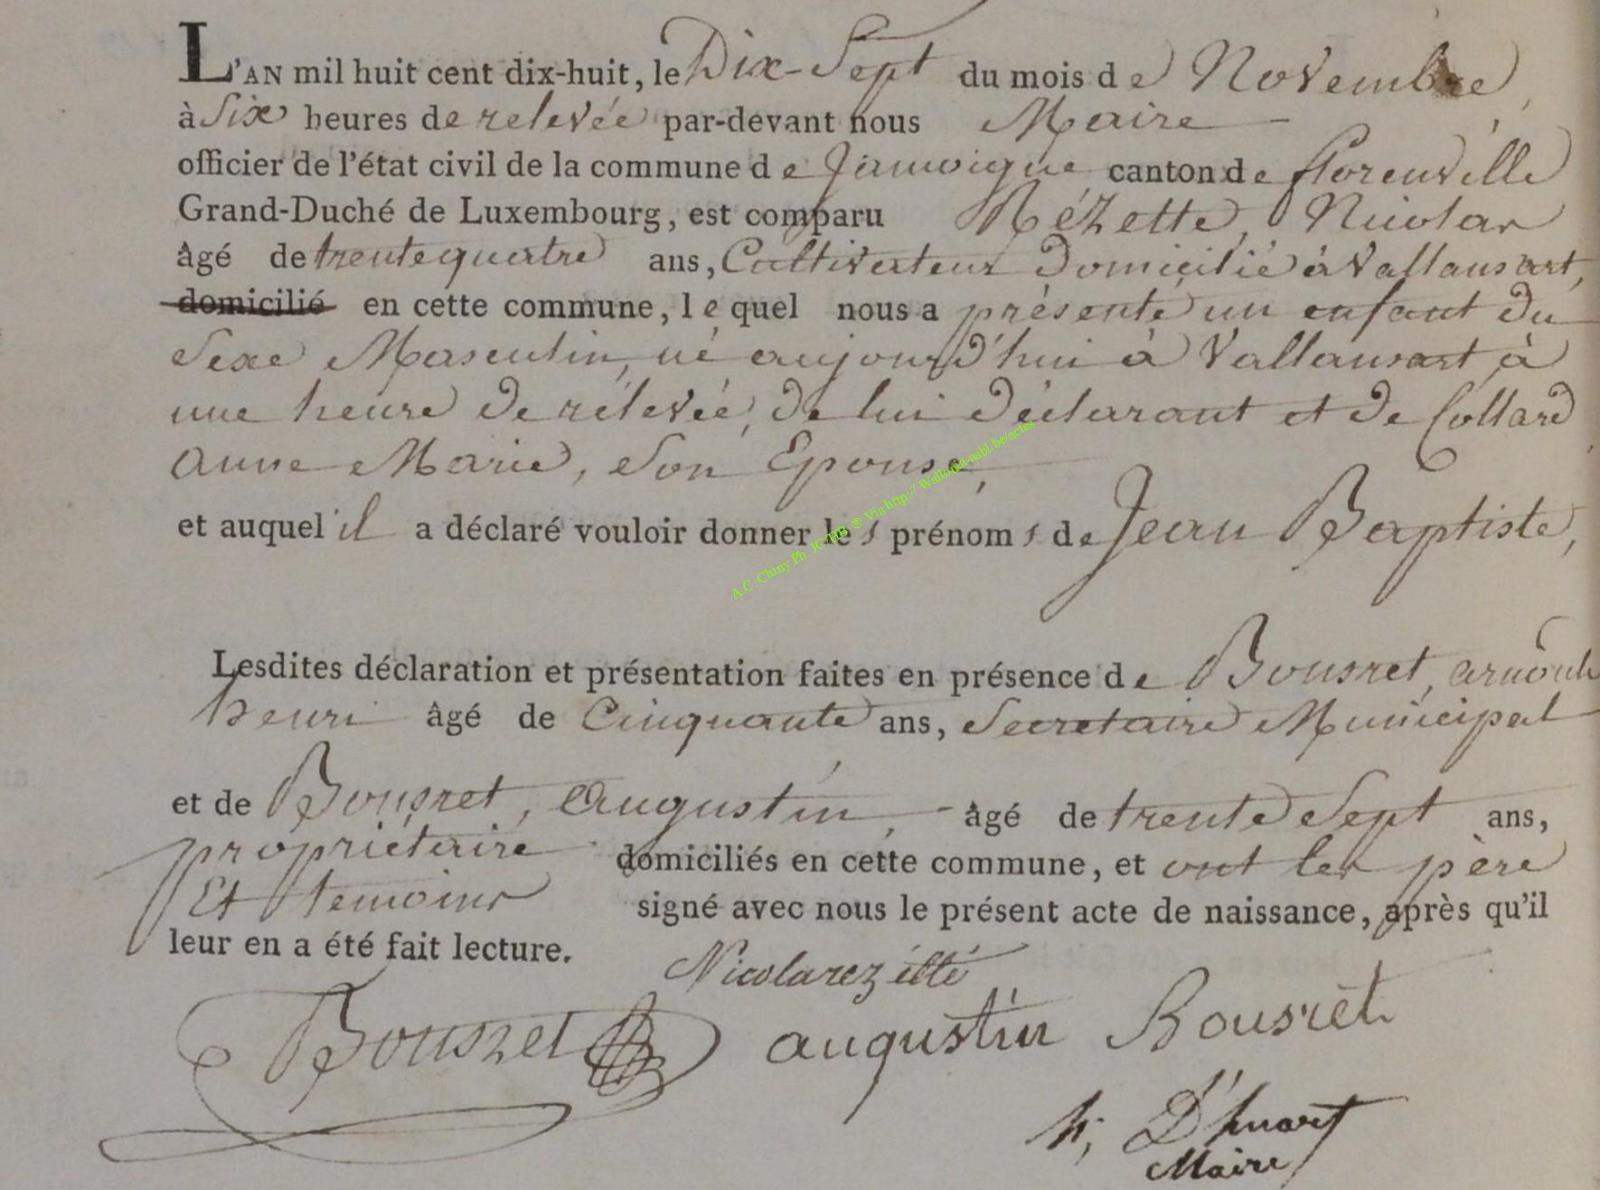 L'AN mil huit cent dix-huit, le Dix-Sept du mois de Novembre,
à Six heures de relevée par-devant nous Maire
officier de l'état civil de la commune de Jamoigne canton de florenville
Grand-Duché de Luxembourg, est comparu Rézette, Nicolas
âgé de trente quatre ans, Cultivateur domicilié à Vallansart,
domicilié en cette commune, lequel nous a présenté un enfant du
Sexe Masculin, né aujourd'hui à Vallansart à
une heure de rélevée, de lui déclarant et de Collard
Anne Marie, Son Epouse,
et auquel il a déclaré vouloir donner les prénoms de Jean Baptiste,
Lesdites déclaration et présentation faites en présence de Bousret, arnould
henri âgé de Cinquante ans, Secretaire Municipal
et de Bousret, Augustin, âgé de trente Sept ans,
propriétaire domiciliés en cette commune, et ont les père
Et temoins signé avec nous le présent acte de naissance, après qu'il
leur en a été fait lecture.
Nicolas rezétté
Bousret augustin Bousret
h, D'huart
Maire